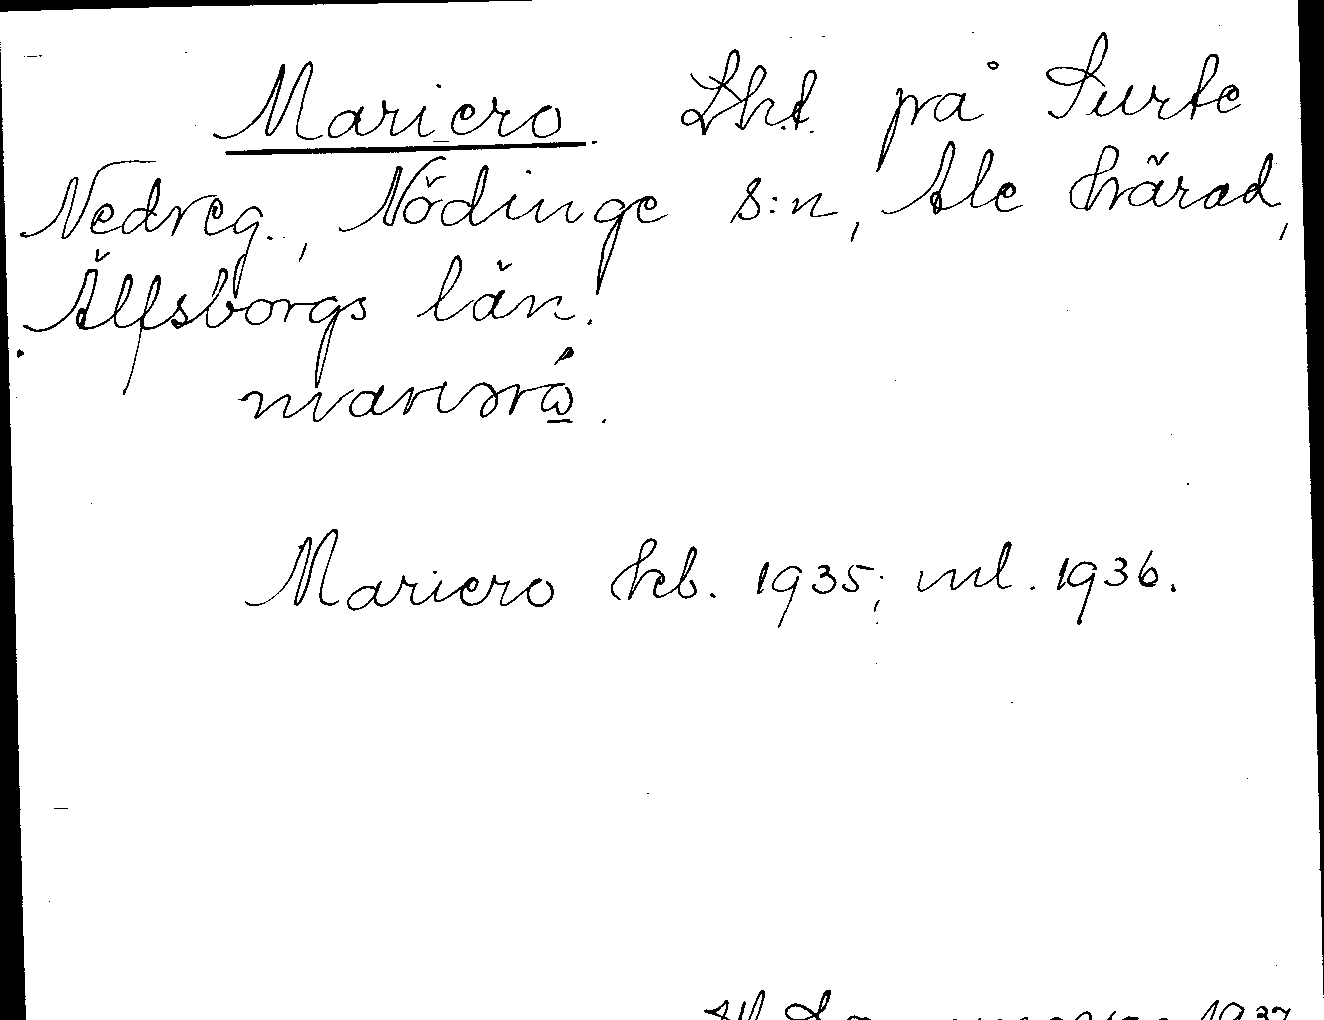 Mariero. Lht. på Surte
Nedreg., Nödinge s:n, Ale härad,
Älfsborgs län.
Mariero hcb. 1935; ml. 1936.
1937